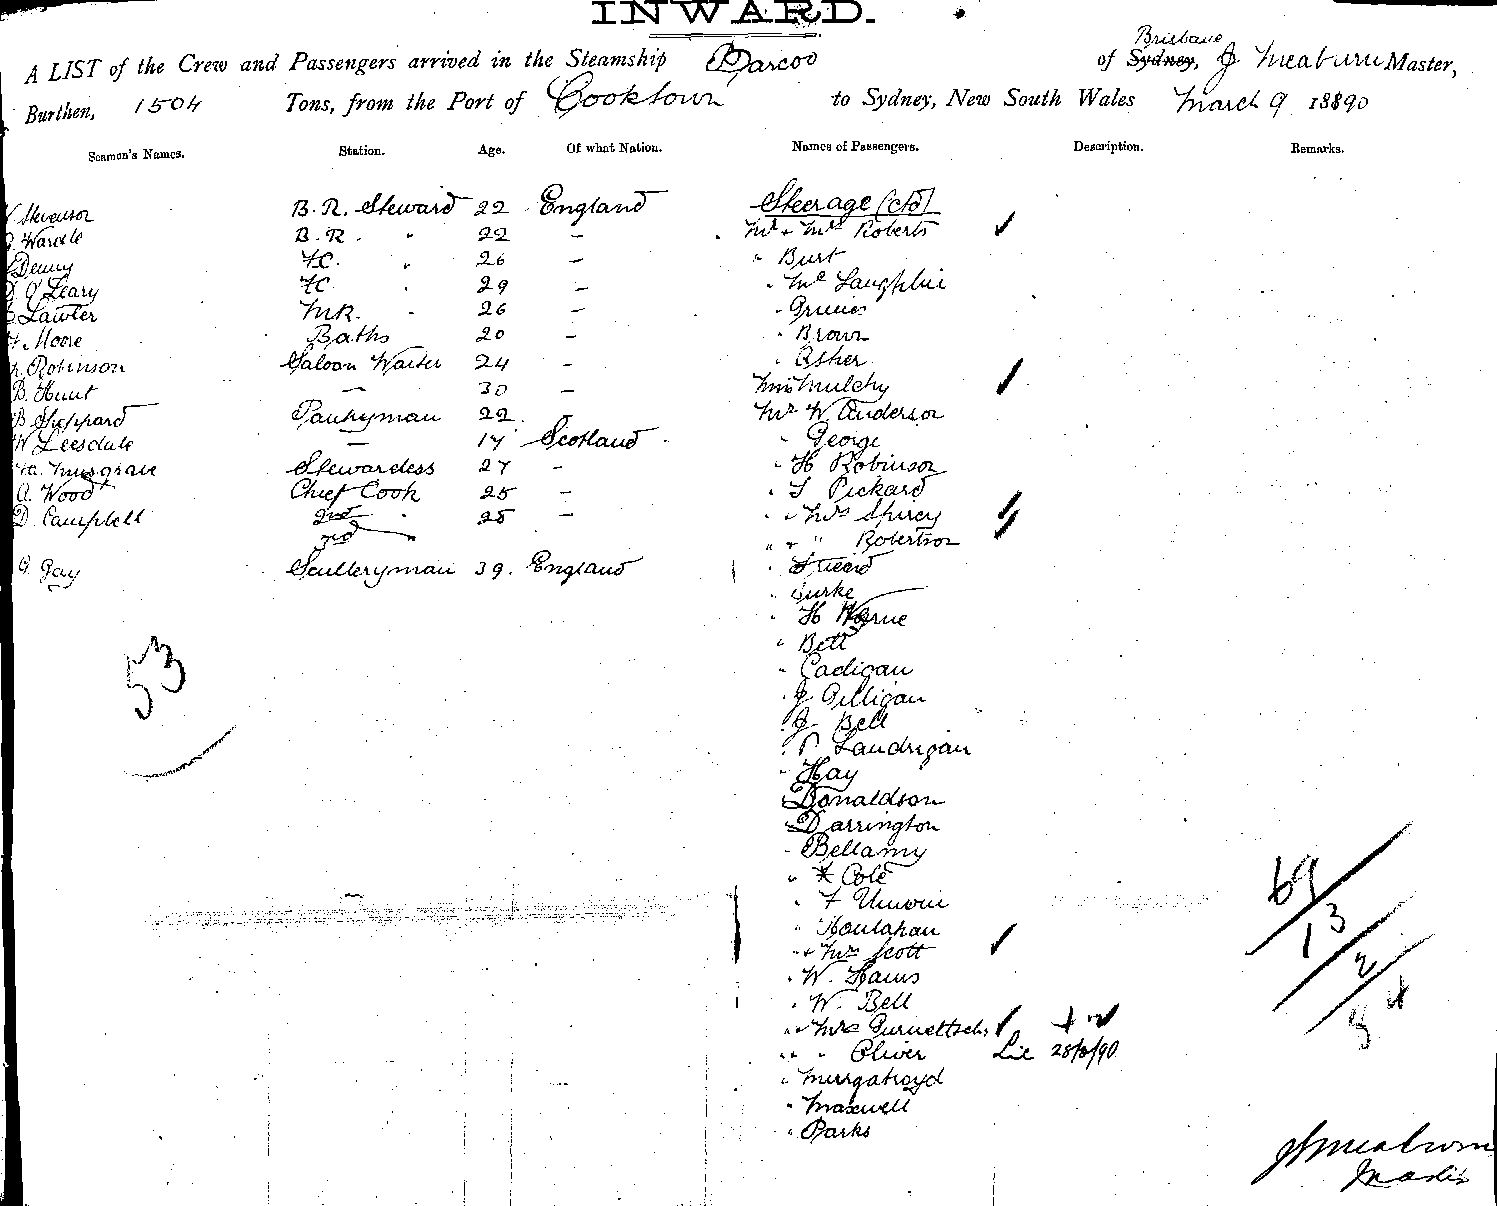 INWARD.
A LIST of the Crew and Passengers arrived in the Steamship Barcoo of Sydney, Brisbane J Meaburn Master,
Burthen, 1504 Tons, from the Port of Cooktown to Sydney, New South Wales March 9 18890
Seamen's Names. Station. Age. Of what Nation. Names of Passengers. Description. Remarks.
Stevenson B. R. Steward 22 England Steerage (ctd)
Wardle B. R. " 22 - Mr + Mrs Roberts ✓
Denny F.C. " 26 - " Burt
O'Leary F.C. " 29 - " McLaughlin
Lawler M.R. " 26 -
F. Moore Baths 20 - " Brown
Robinson Saloon Waiter 24 - " Asher
B. Hunt - 30 - Miss Mulchy ✓
B Sheppard Pantryman 22 Mr W Anderson
W Leesdale - 17 Scotland " George
Musgrave Stewardess 27 - " H Robinson
A. Wood Chief Cook 25 - " S Pickard
D. Campbell 2nd " 25 - " + Mrs Spirey ✓
3rd " + " Robertson ✓
G. Gay Sculleryman 39. England
" Burke
" H
" Bett
53 " Cadigan
" J Gilligan
" J Bell
" P Landrigan
" Hay
" Donaldson
" Darrington
" Bellamy
" Cole
69 " F Unwin
13 " Houlahan
2 " + Mrs Scott ✓
" W. Hains
84 " W. Bell
" + Mrs ✓
" + " Oliver Lic 28/3/90
" Murgatroyd
" Maxwell
" Parks
J Meaburn
Master